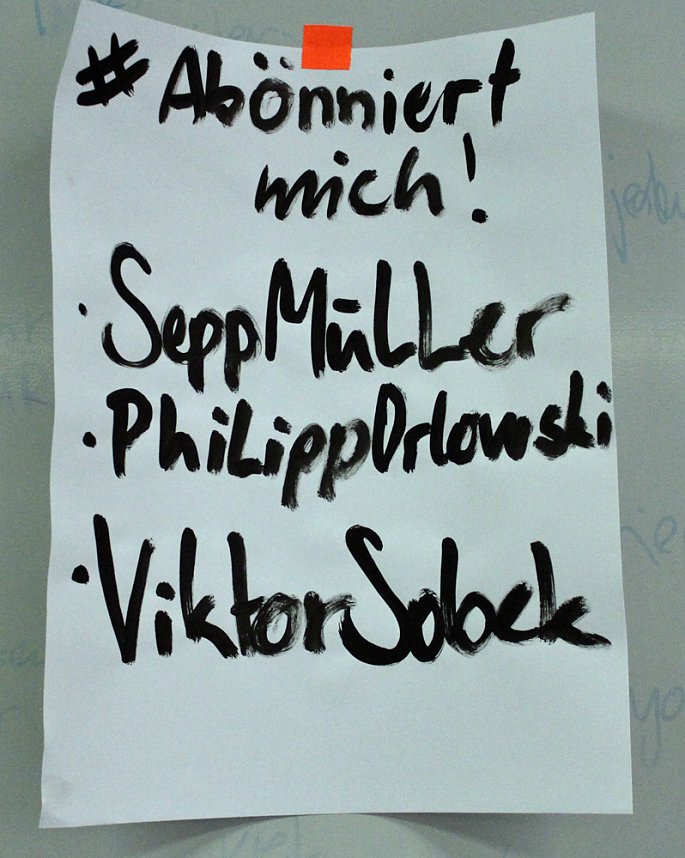 #Abönniert
mich!
· SeppMüller
· PhilippOrlowski
· ViktorSobek